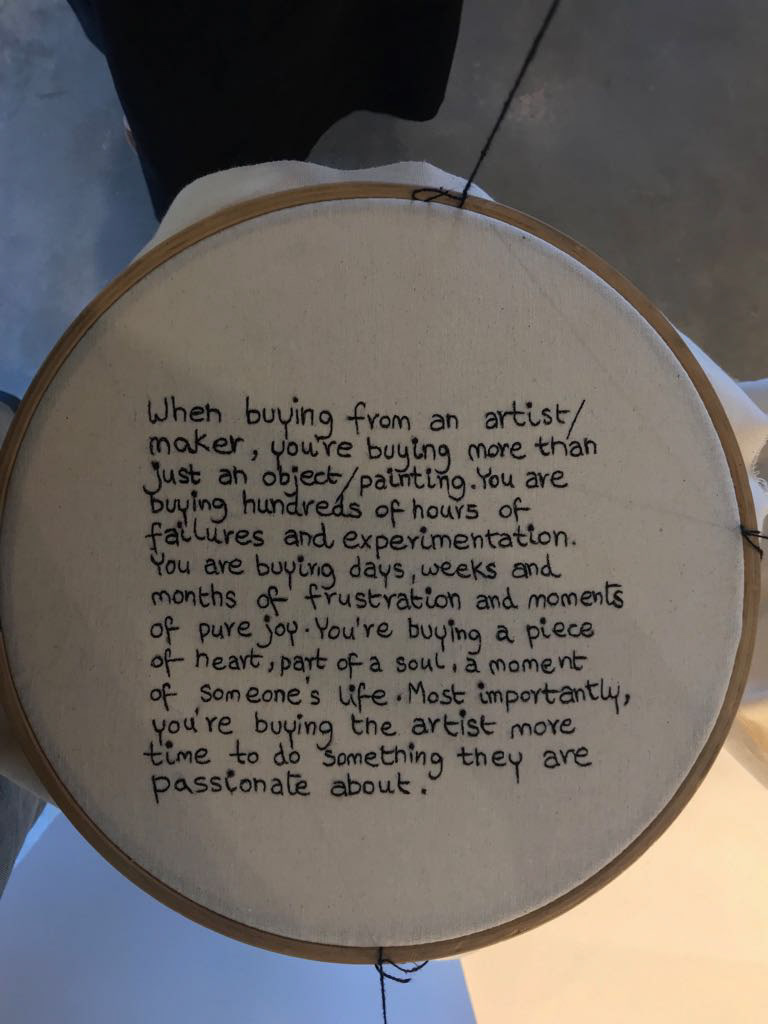 When buying from an artist/
maker, you're buying more than
just an object/painting. You are
buying hundreds of hours of
failures and experimentation.
You are buying days, weeks and
months of frustration and moments
of pure joy. You're buying a piece
of heart, part of a soul, a moment
of someone's life. Most importantly,
you're buying the artist more
time to do something they are
passionate about.